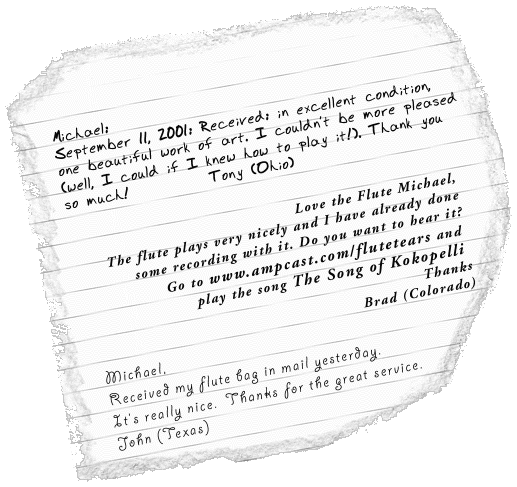 Michael:
September 11, 2001: Received: in excellent condition,
one beautiful work of art. I couldn't be more pleased
(well, I could if I knew how to play it!). Thank you
so much! Tony (Ohio)
Love the Flute Michael,
The flute plays very nicely and I have already done
some recording with it. Do you want to hear it?
Go to www.ampcast.com/flutetears and
play the song The Song of Kokopelli
Thanks
Brad (Colorado)
Michael,
Received my flute bag in mail yesterday.
It's really nice. Thanks for the great service.
John (Texas)